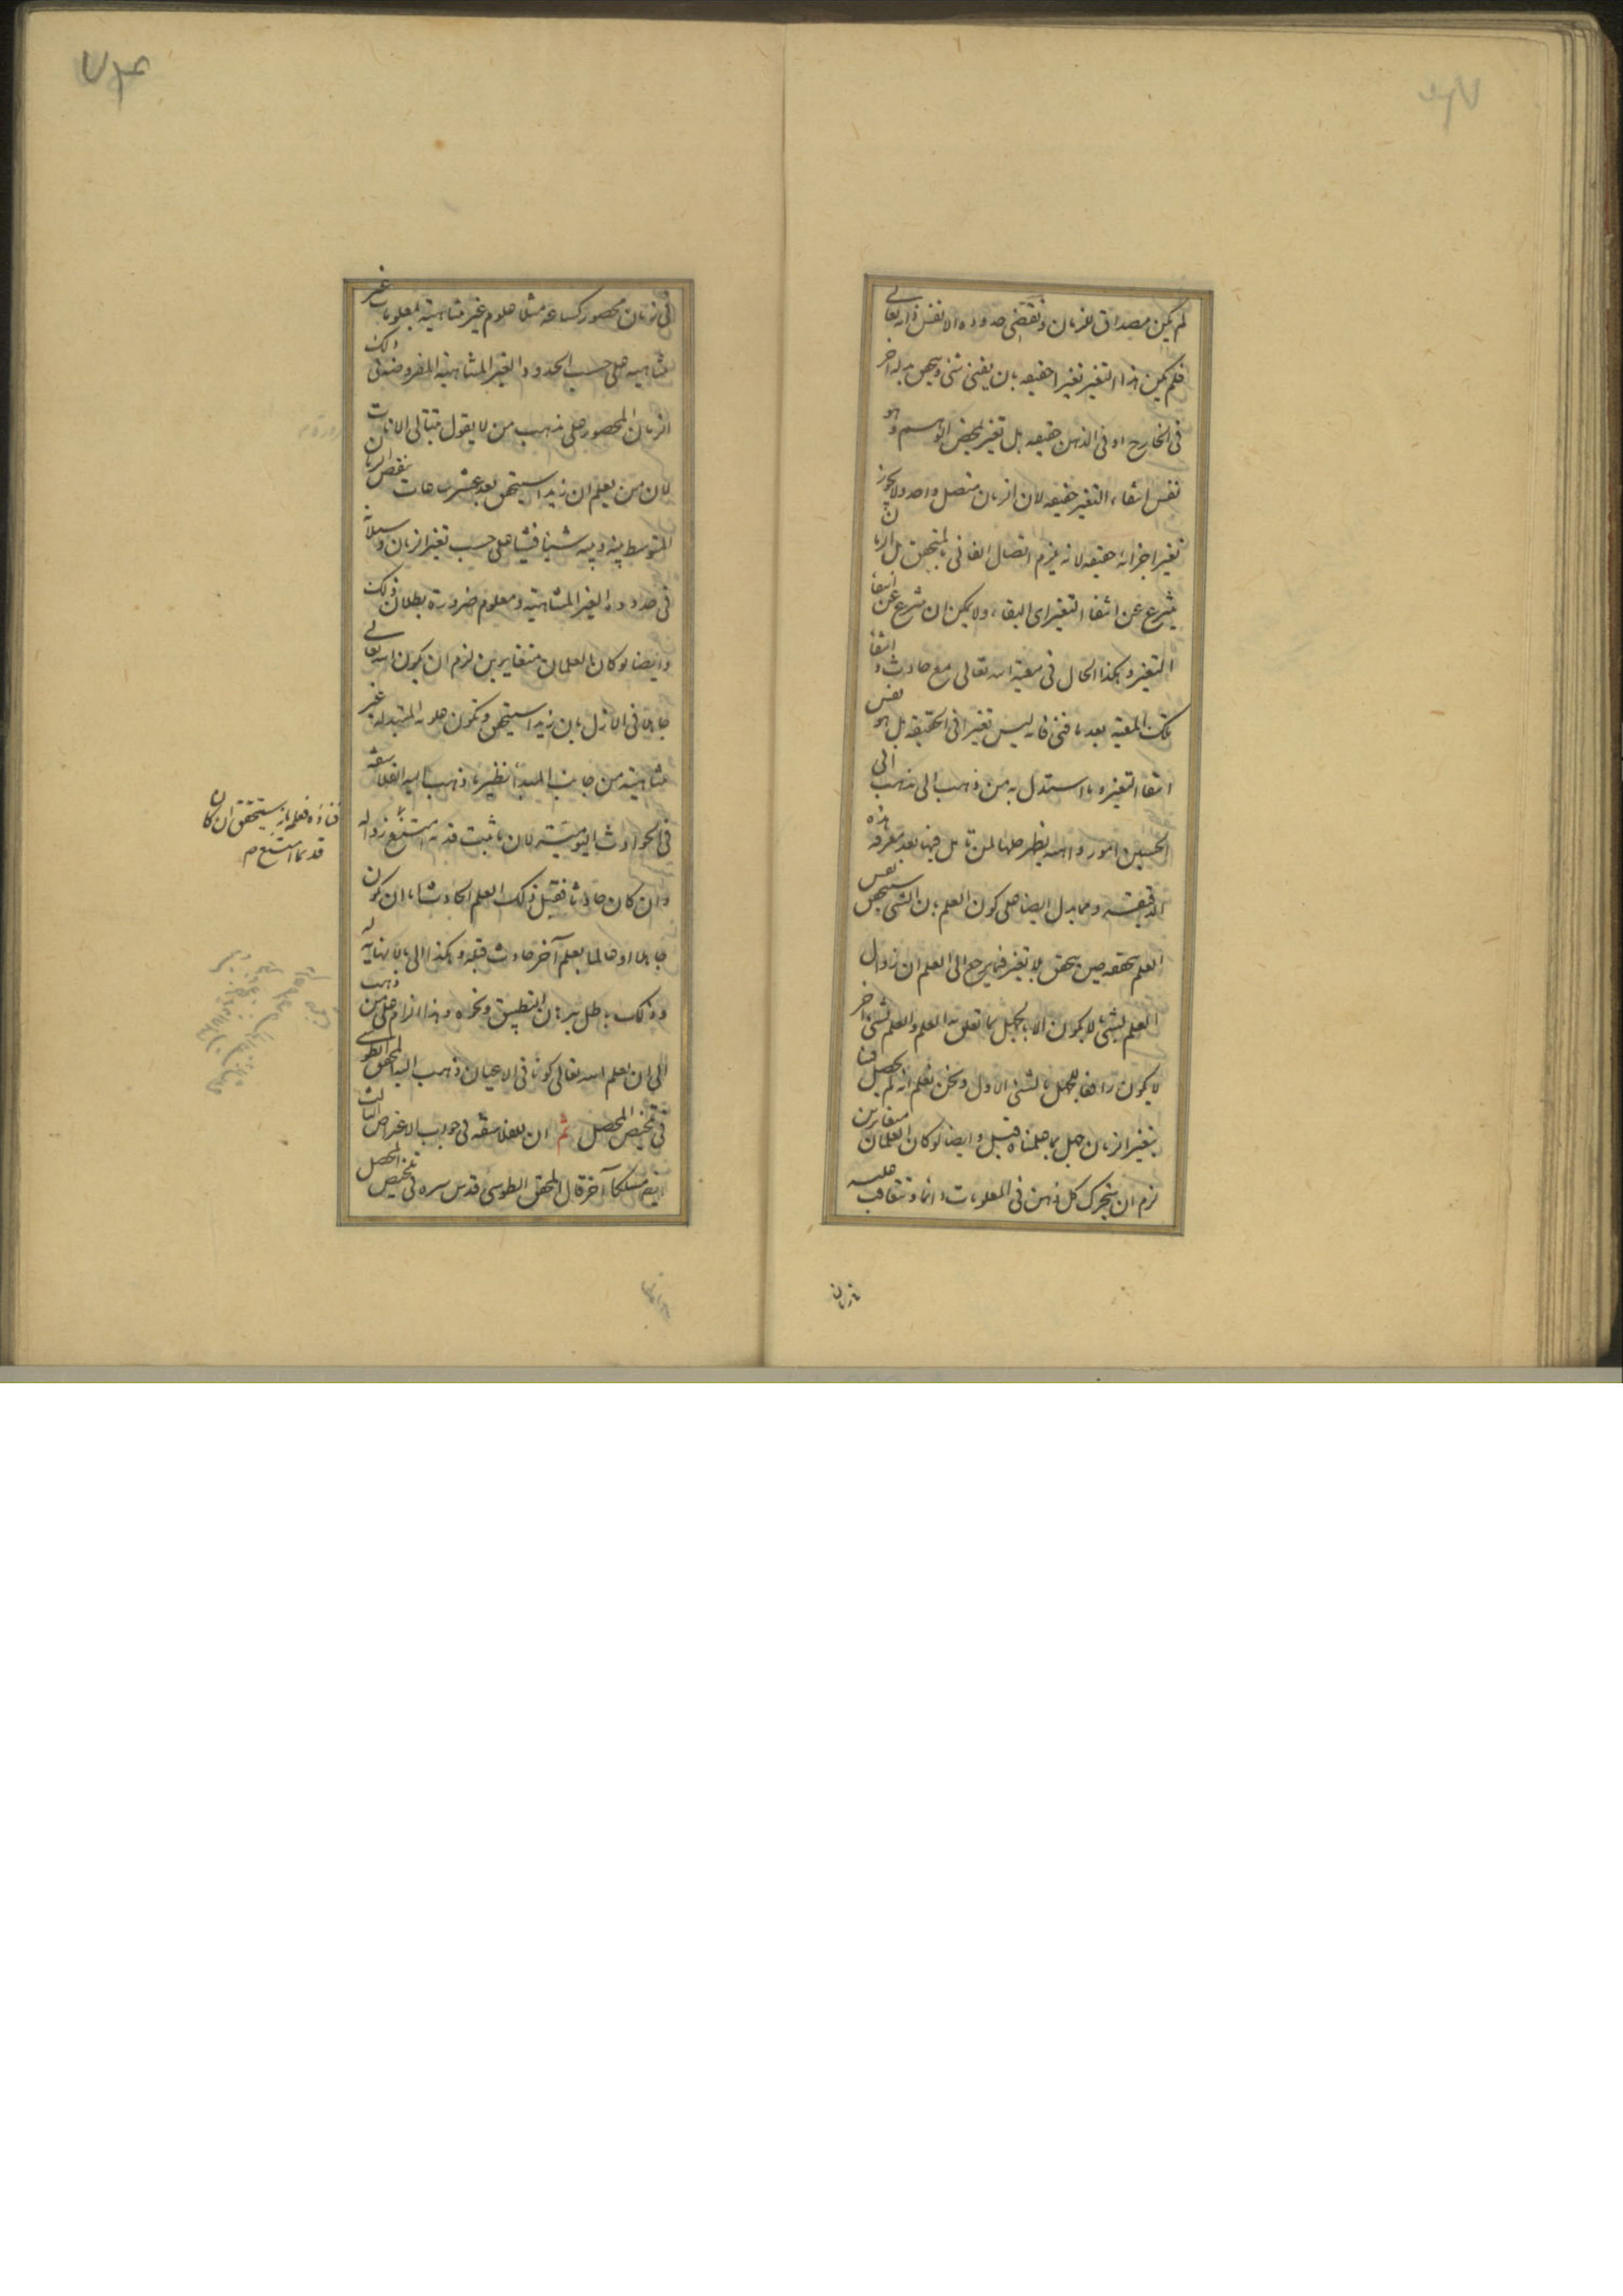 لم يكن مصداق للزمان وتقضى حدوده الا نفس ذاته تعالى
فلم يكن هذا التغير تغيرا حقيقه بان يفنى شئ ويتحقق بدله آخر
فى الخارج او فى الذهن حقيقه بل تغير لمحض التوهم وهو
نفس انتفاء التغير حقيقه لان الزمان متصل واحد ولا يجوز
تغير اجزائه حقيقه لانه يلزم اتصال الفانى بالمتحقق بل الزمان
ينتزع عن انتفاء التغير اى البقاء ولا يمكن ان ينتزع عن انتفا
التغير وهكذا الحال فى معية الله تعالى مع حادث وانتفا
تلك المعية بعد ما فنى فانه ليس تغيرا فى الحقيقه بل هو نفس
انتفا التغير وما استدل به من ذهب الى مذهب ابى
الحسين امور واهيه يظهر حلها لمن تامل فيها بعد معرفه هذه
الدقيقه ومما يدل ايضا على كون العلم بان الشئ سيتحقق نفس
العلم بتحققه حين تحقق بلا تغير فيما يرجع الى العلم ان زوال
العلم بشئ لا يكون الا بالجهل بما تعلق به العلم والعلم بشئ آخر
لا يكون رافعا للجهل بالشئ الاول ونحن نعلم انه لم يحصل لنا
بتغير الزمان جهل بما علمناه قبل وايضا لو كان العلمان متغايرين
لزم ان يتحرك كل ذهن فى المعلومات دائما وتتعاقب عليه
فى زمان
فى زمان محصور كساعه مثلا علوم غير متناهية بمعلومات غير
متناهيه على حسب الحدود الغير المتناهية المفروضه فى ذلك
الزمان المحصور على مذهب من لا يقول بتتالى الانات
لان من يعلم ان زيدا سيتحقق بعد عشر ساعات ينقص الزمان
المتوسط بينه وبينه شيئا فشيئا على حسب تغير الزمان وسيلانه
فى حدوده الغير المتناهية ومعلوم ضرورة بطلان ذلك
وايضا لو كان العلمان متغايرين لزم ان يكون الله تعالى
جاهلا فى الازل بان زيدا سيتحقق وتكون علومه المتبدله غير
متناهية من جانب المبدأ نظير ما ذهب اليه الفلاسفه
فى الحوادث اليوميته لان ما ثبت قدمه امتنع زواله
وان كان حادثا فقبل ذلك العلم الحادث اما ان يكون
جاهلا او عالما بعلم آخر حادث قبله وهكذا الى ما لا نهاية له
وذلك باطل ببرهان التطبيق ونحوه وهذا الزام على من ذهب
الى ان علم الله تعالى كونا فى الاعيان ذهب اليه المحقق الطوسى
فى تلخيص المحصل ثم ان للفلاسفه فى جواب الاعتراض الثالث
ايضا مسلكا آخر قال المحقق الطوسى قدس سره فى تلخيص المحصل
فناؤه فعلمه بانه سيتحقق ان كان
قديما امتنع م